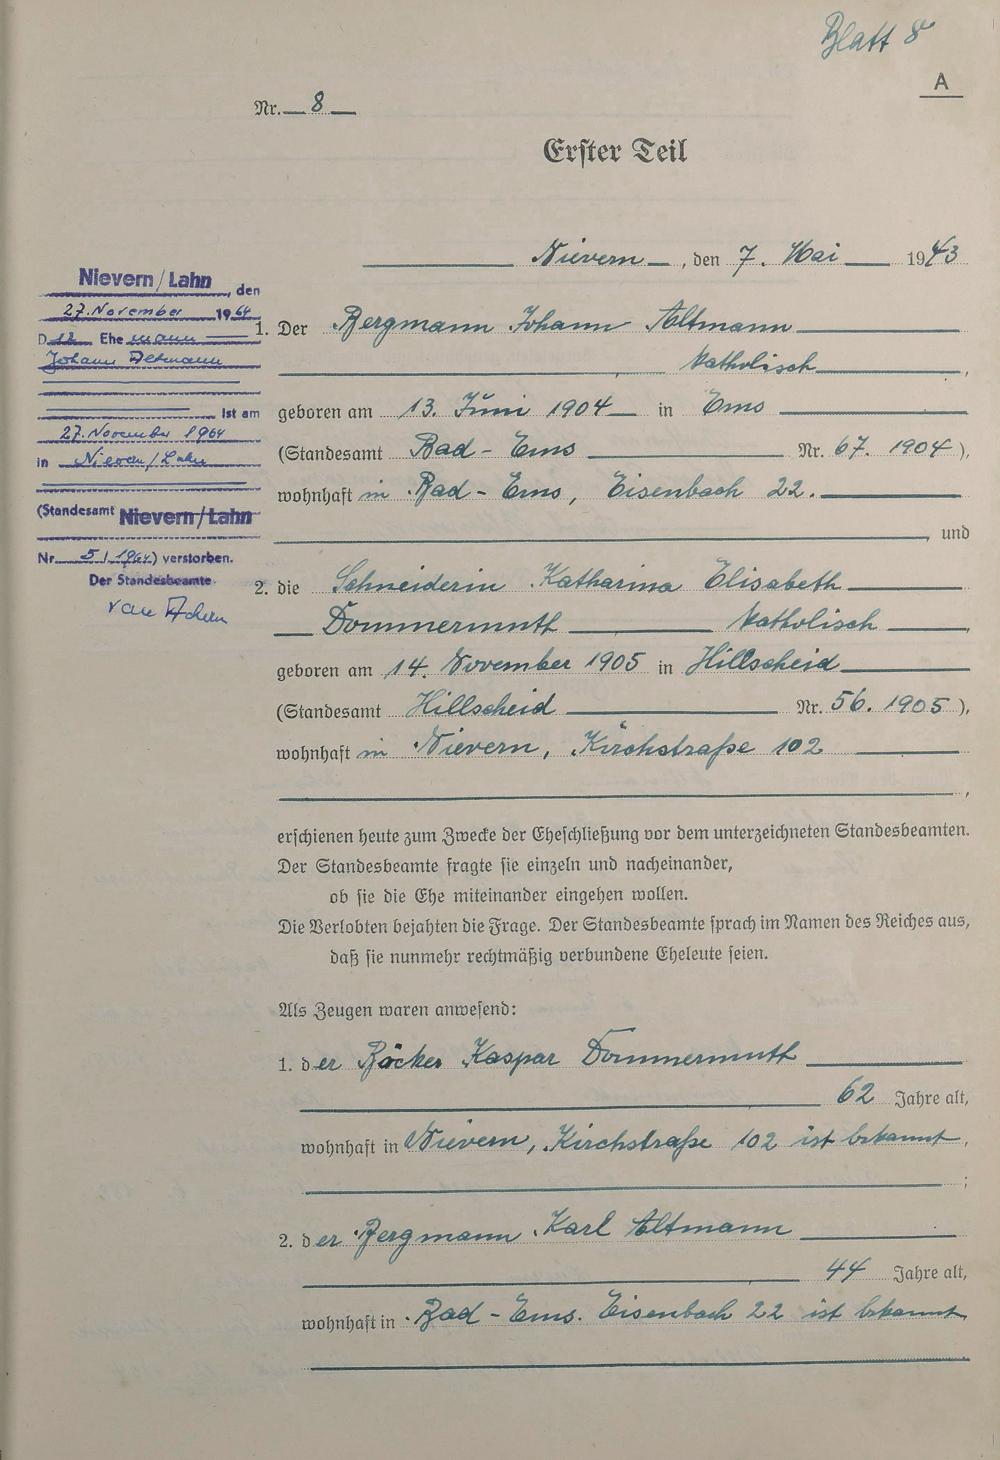 Blatt 8
A
Nr. 8
Erster Teil
Nievern, den 7. Mai 1943
Nievern/Lahn, den
27. November 1964
D Ehemann
Johann Altmann
ist am
27. November 1964
in Nievern/Lahn
(Standesamt Nievern/Lahn
Nr. 5/1964) verstorben.
Der Standesbeamte
1. Der Bergmann Johann Altmann
katholisch,
geboren am 13. Juni 1904 in Ems
(Standesamt Bad-Ems Nr. 67. 1904),
wohnhaft in Bad-Ems, Eisenbach 22.
, und
2. die Schneiderin Katharina Elisabeth
Dommermuth katholisch,
geboren am 14. November 1905 in Hillscheid
(Standesamt Hillscheid Nr. 56. 1905),
wohnhaft in Nievern, Kirchstraße 102
,
erschienen heute zum Zwecke der Eheschließung vor dem unterzeichneten Standesbeamten.
Der Standesbeamte fragte sie einzeln und nacheinander,
ob sie die Ehe miteinander eingehen wollen.
Die Verlobten bejahten die Frage. Der Standesbeamte sprach im Namen des Reiches aus,
daß sie nunmehr rechtmäßig verbundene Eheleute seien.
Als Zeugen waren anwesend:
1. der Bäcker Kaspar Dommermuth
62 Jahre alt,
wohnhaft in Nievern, Kirchstraße 102 ist bekannt,
;
2. der Bergmann Karl Altmann
44 Jahre alt,
wohnhaft in Bad-Ems. Eisenbach 22 ist bekannt